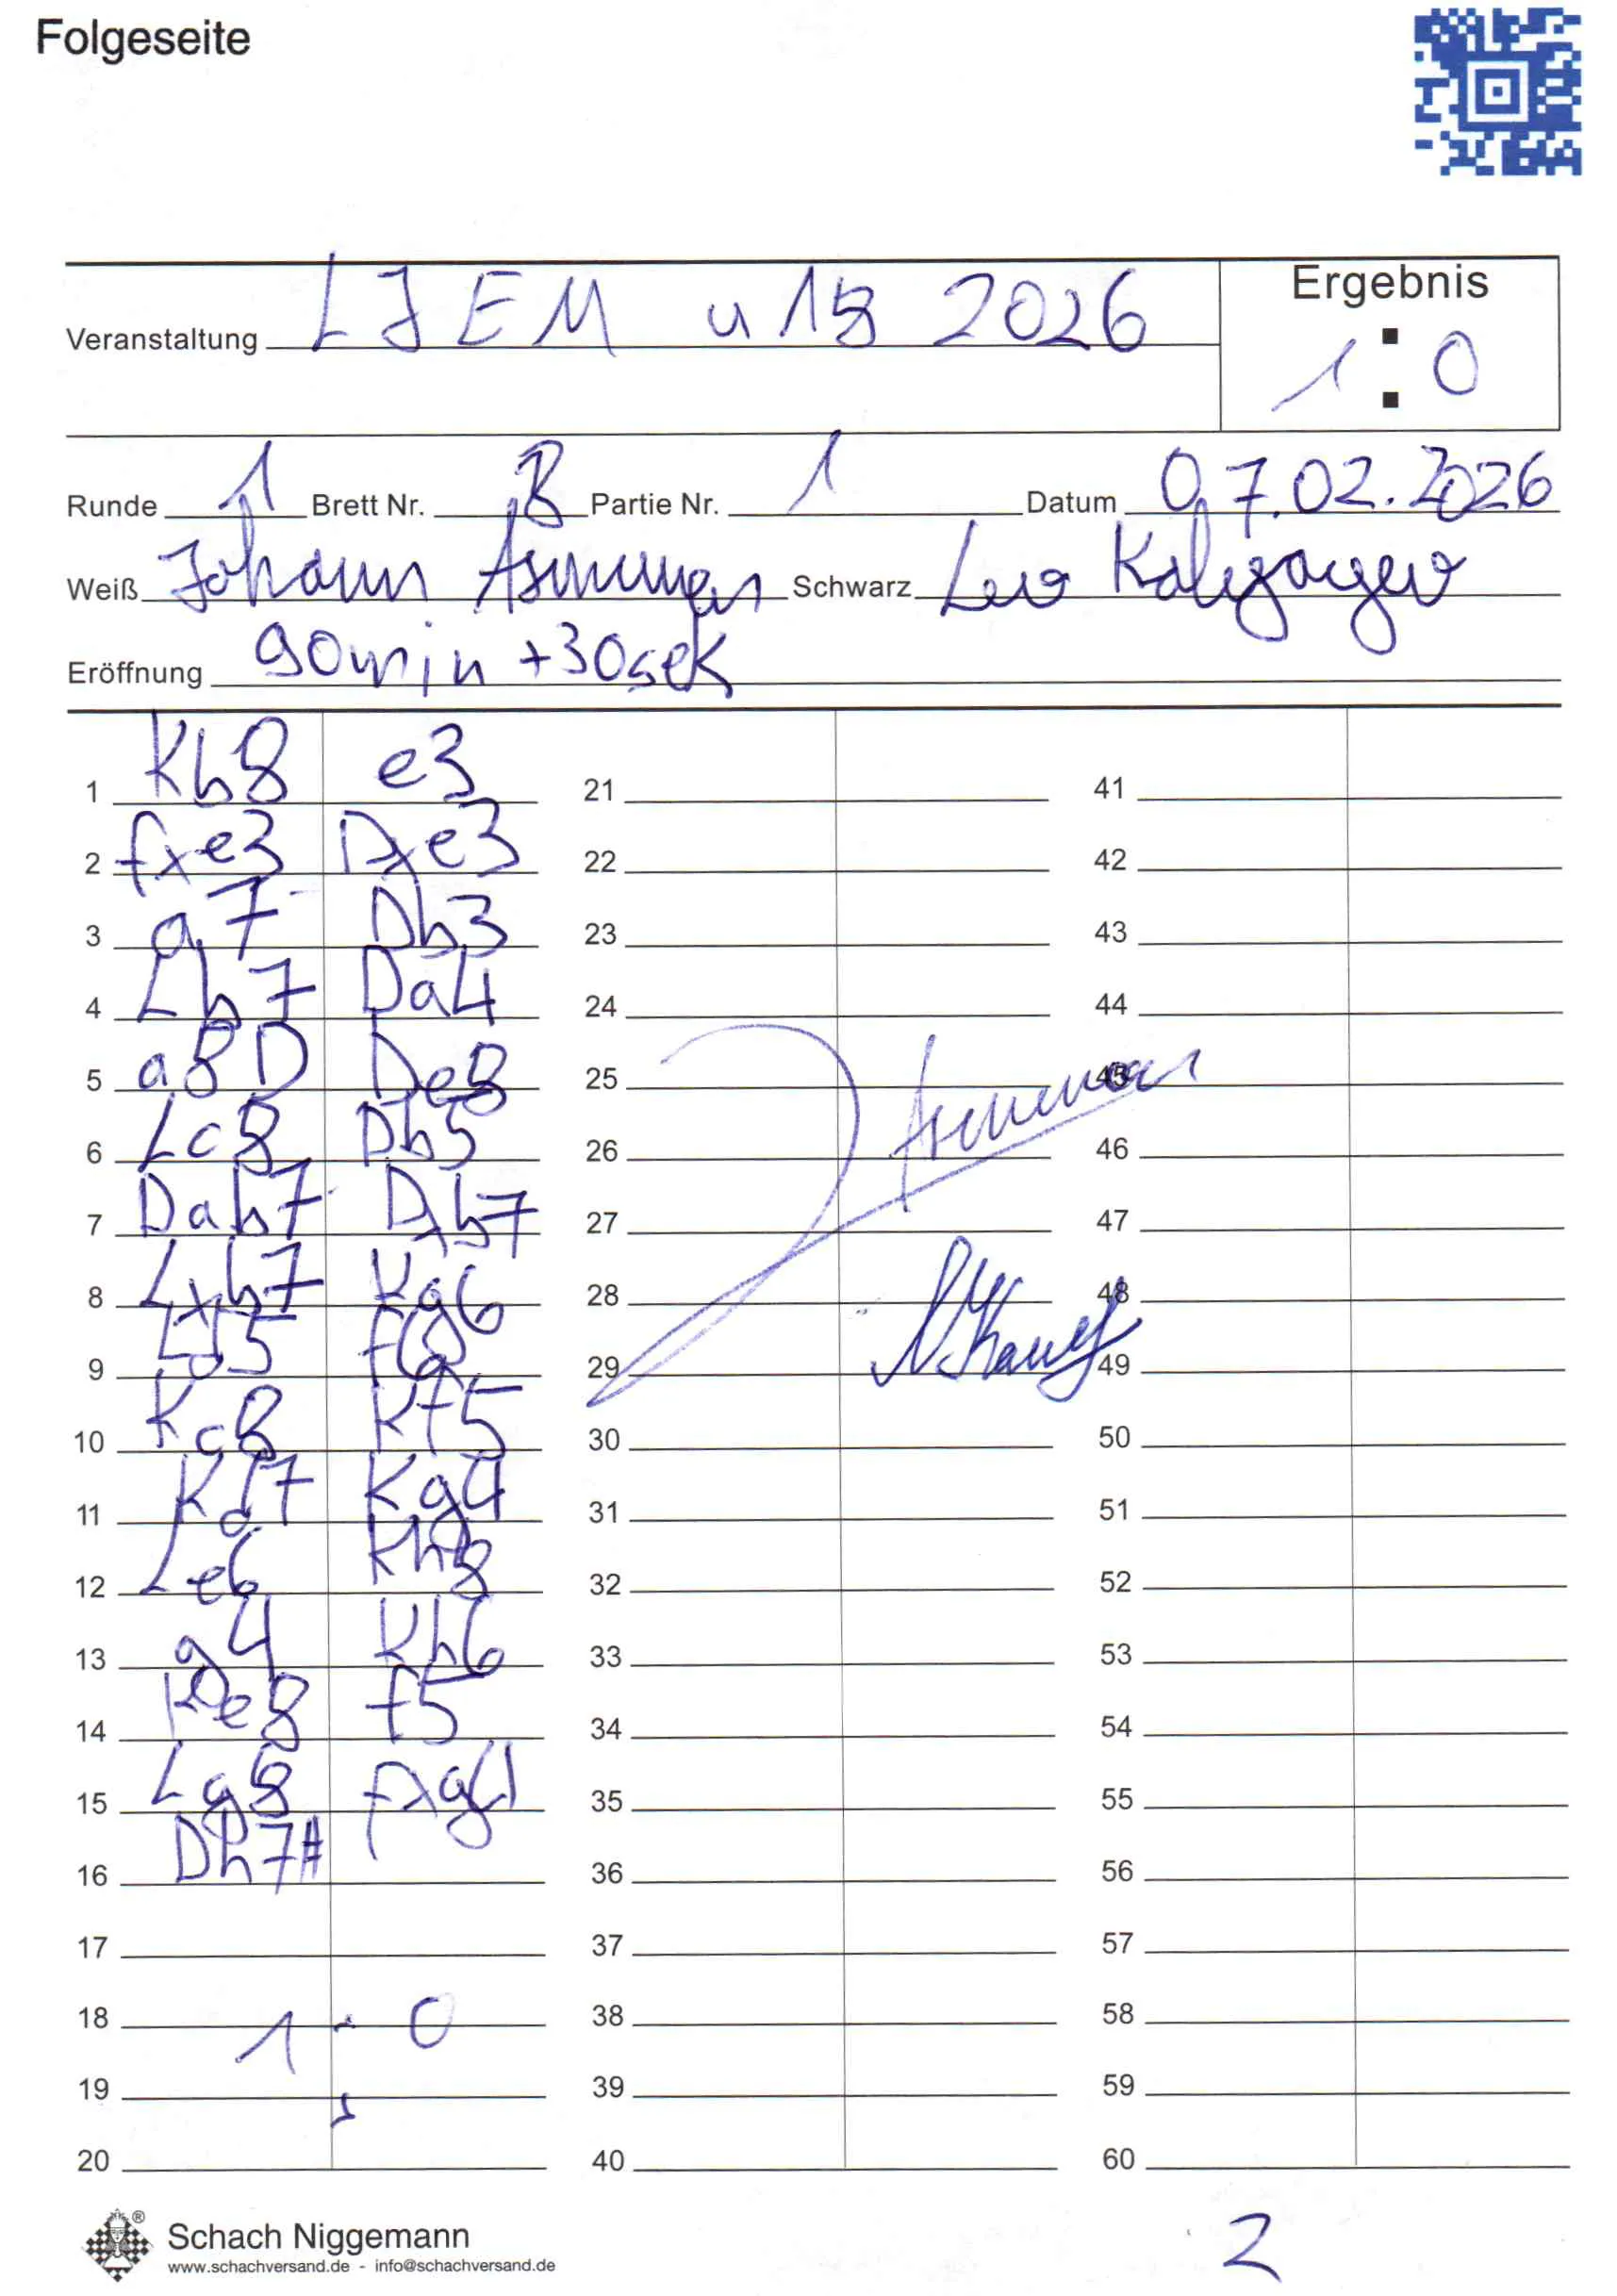 Folgeseite
Veranstaltung LJEM u18 2026
Ergebnis
1:0
Runde 1 Brett Nr. 8 Partie Nr. 1 Datum 07.02.2026
Weiß Johann Schwarz
Eröffnung 90min +30sek
1 Kb8 e3 21 41
2 fxe3 Dxe3 22 42
3 a7 Db3 23 43
4 Lb7 Da4 24 44
5 a8D De8 25 45
6 Lc8 Db5 26 46
7 Dab7 Dxb7 27 47
8 Lxb7 Kg6 28 48
9 Ld5 f6 29 49
10 Kc8 Kf5 30 50
11 Kd7 Kg4 31 51
12 Le6 32 52
13 g4 Kh6 33 53
14 De8 f5 34 54
15 Lg8 fxg4 35 55
16 Dh7# 36 56
17 37 57
18 1 : 0 38 58
19 39 59
20 40 60
® Schach Niggemann
www.schachversand.de - info@schachversand.de
2